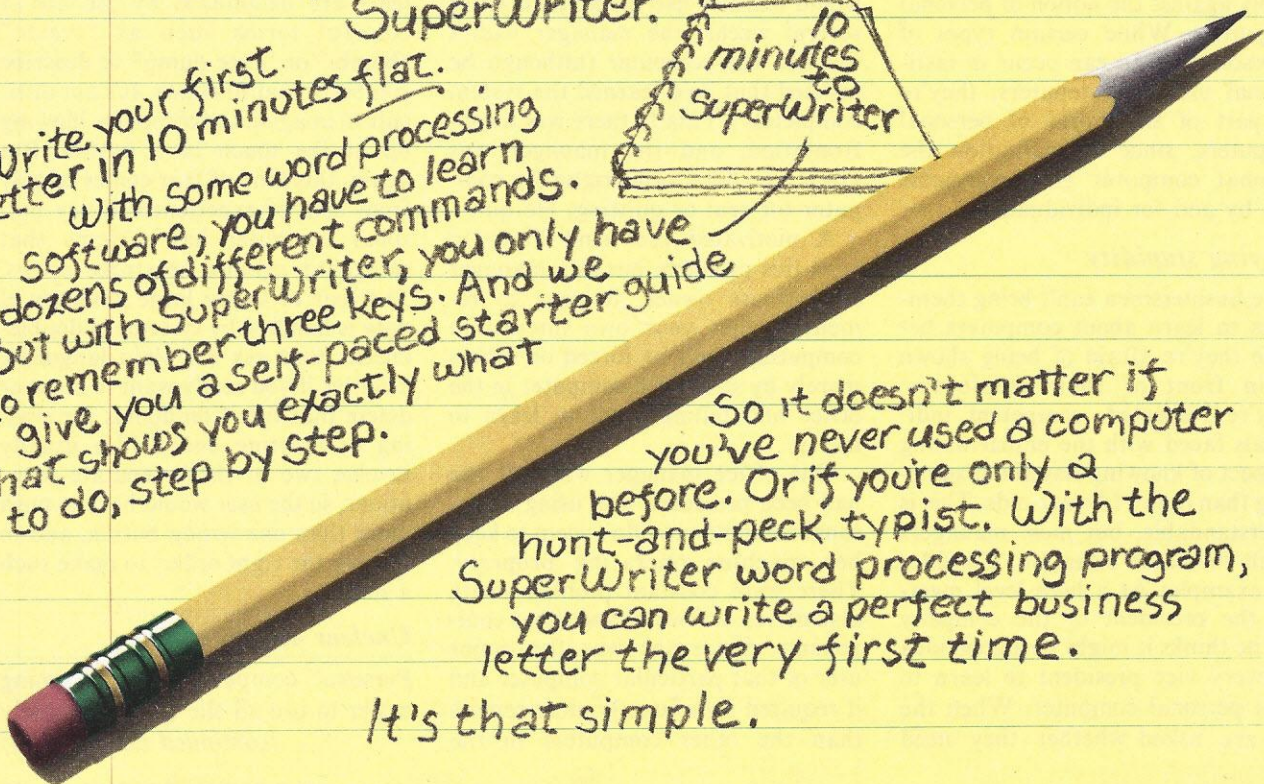 SuperWriter.
10
minutes
to
SuperWriter
Write your first
etter in 10 minutes flat.
With some word processing
software, you have to learn
dozens of different commands.
but with SuperWriter, you only have
to remember three keys. And we
give you a self-paced starter guide
hat shows you exactly what
to do, step by step.
So it doesn't matter if
you've never used a computer
before. Or if you're only a
hunt-and-peck typist. With the
SuperWriter word processing program,
you can write a perfect business
letter the very first time.
It's that simple.